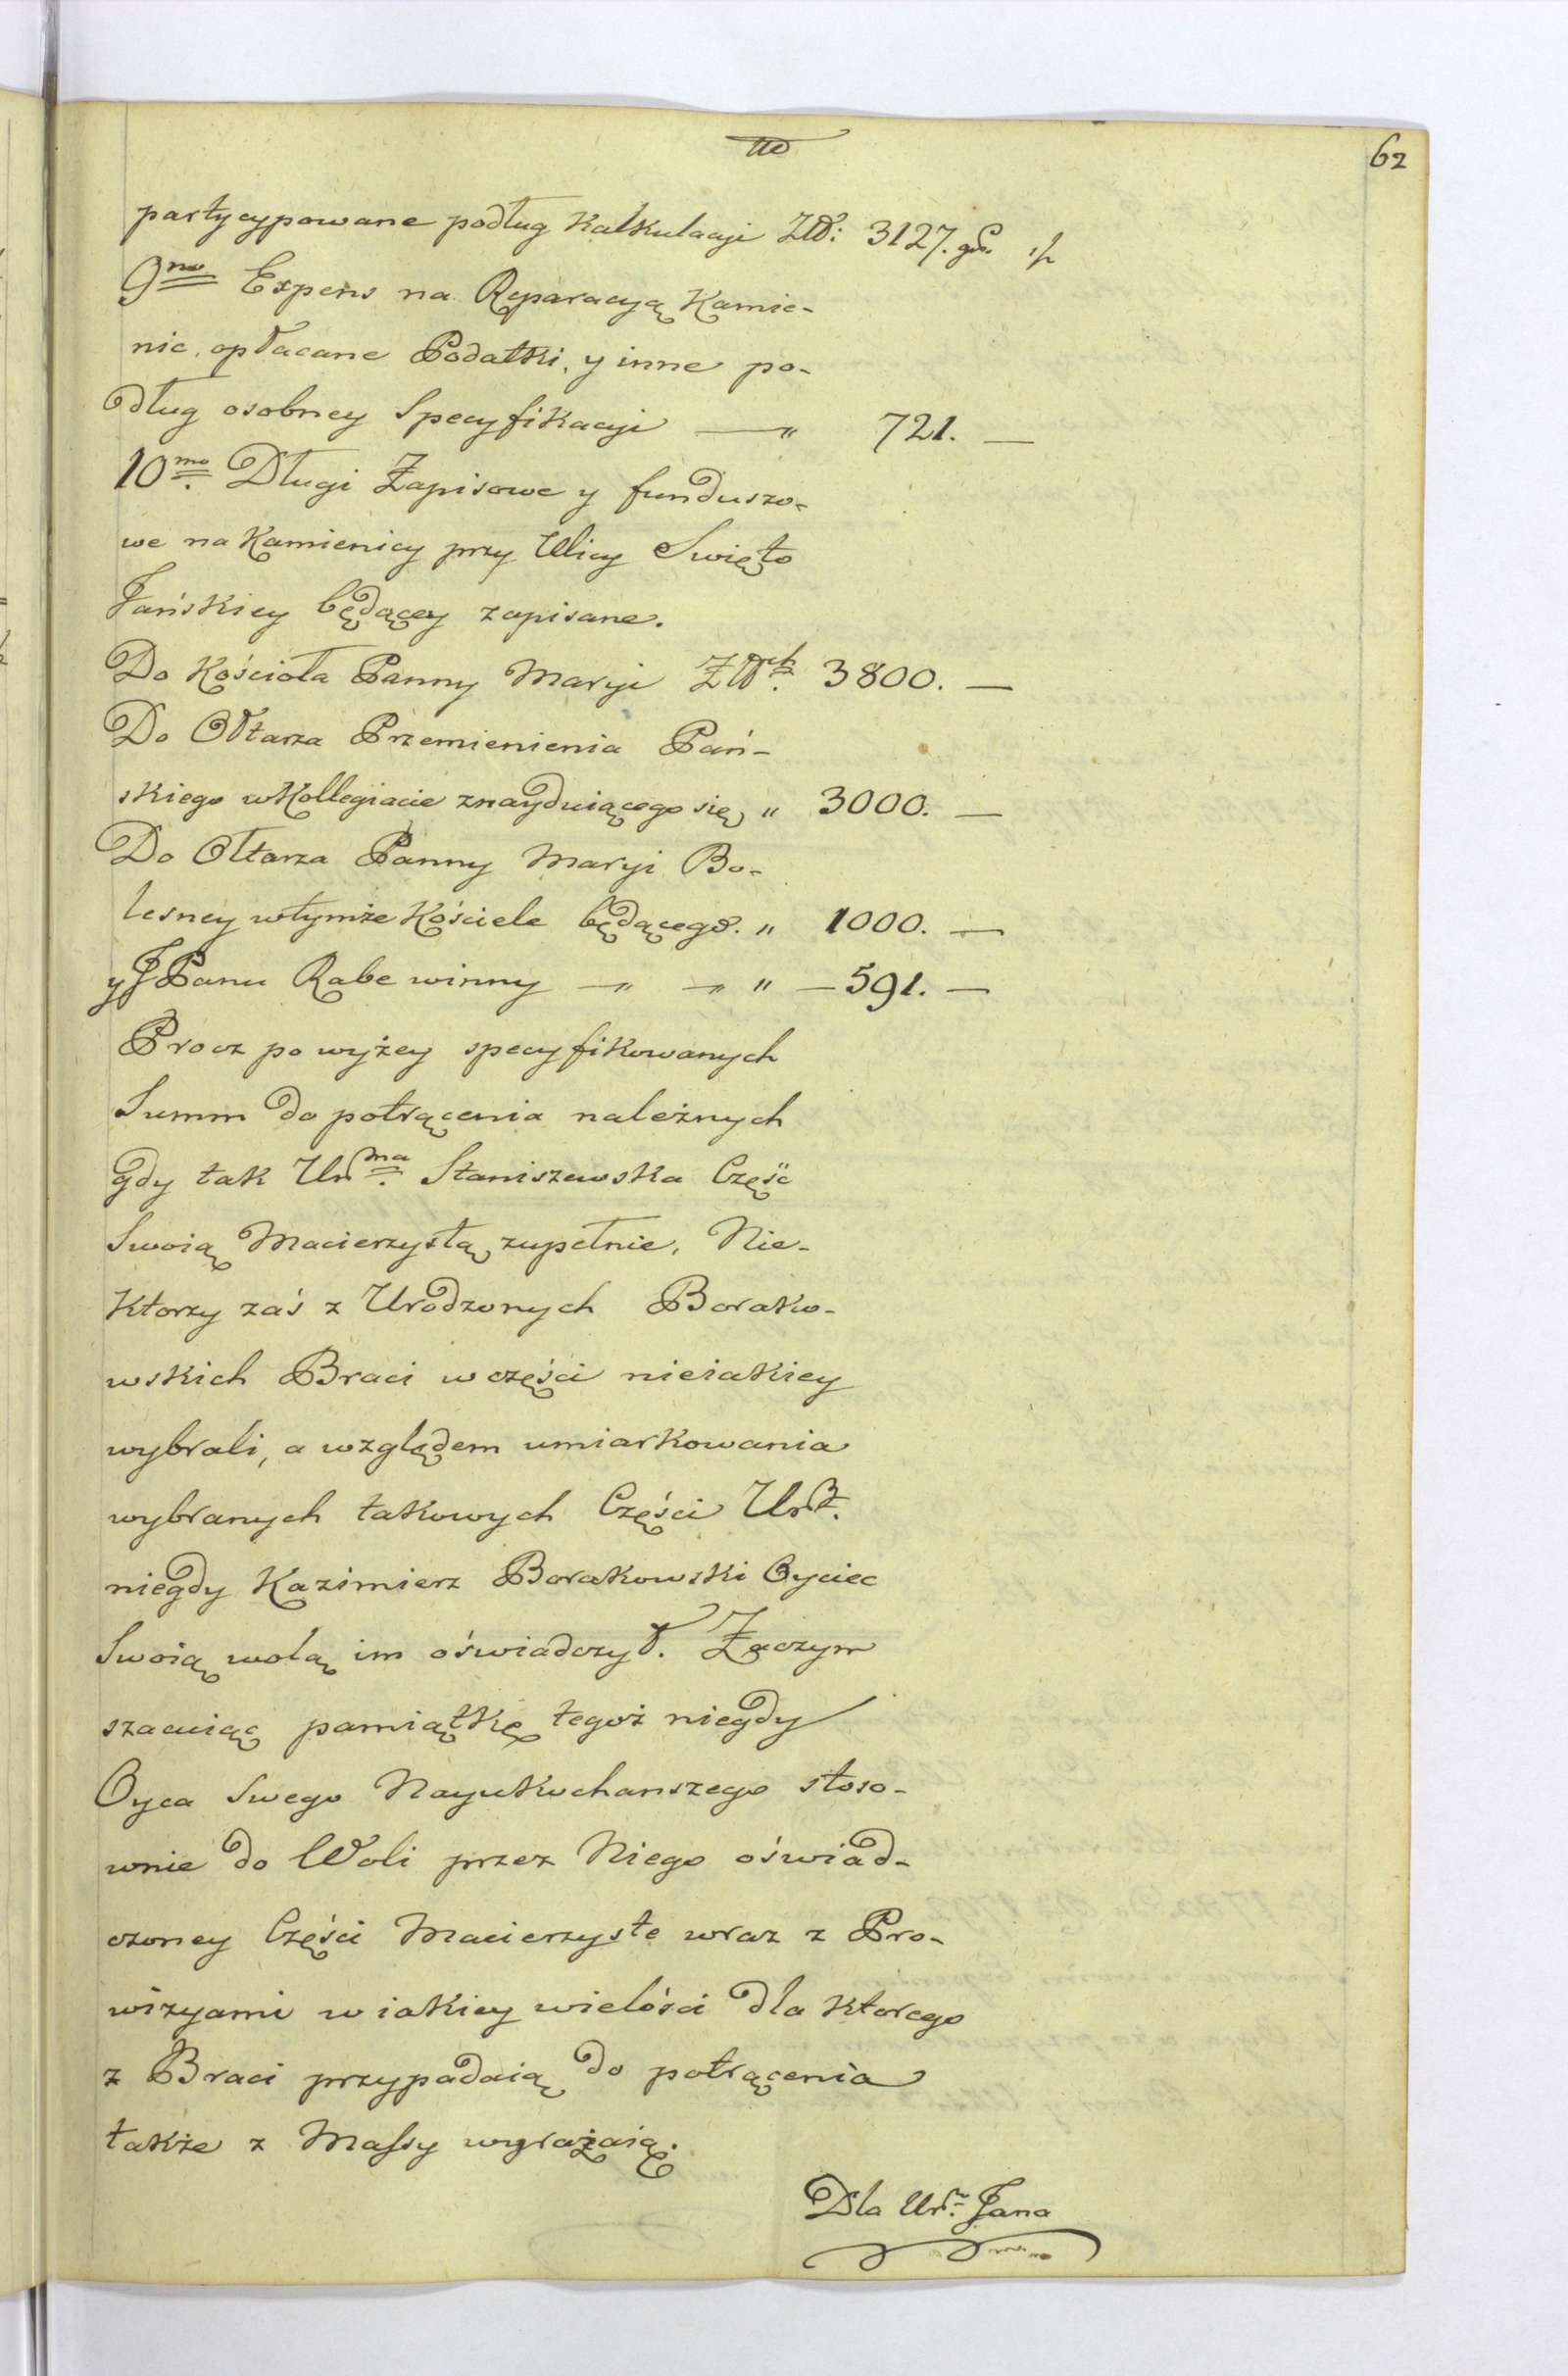 62
partycypowane podług Kalkulacyi Złł: 3127. gr.
9no Expens na Reparacyą Kamie-
nic, opłacane Podatki, y inne po-
dług osobney Specyfikacyi — " 721. —
10mo. Długi Zapisowe y funduszo-
we na Kamienicy przy Ulicy Swięto
Jańskiey będącey zapisane.
Do Kościoła Panny Maryi Złłch. 3800. —
Do Ołtarza Przemienienia Pań-
skiego w Kollegiacie znayduiącego się " 3000. —
Do Ołtarza Panny Maryi Bo-
lesney w tymże Kościele będącego. " 1000. —
y JPanu Rabe winny — " — " " — 591. —
Procz po wyżey specyfikowanych
Summ do potrącenia należnych
gdy tak Urma. Staniszewska Część
Swoią Macierzystą zupełnie, Nie-
ktorzy zaś z Urodzonych Borako-
wskich Braci w części nieiakiey
wybrali, a względem umiarkowania
wybranych takowych Części Ur.
niegdy Kazimierz Borakowski Oyciec
Swoią wolą im oświadczył. Zaczym
szacuiąc pamiątkę tegoż niegdy
Oyca Swego Nayukochanszego stoso-
wnie do Woli przez Niego oświad-
czoney Części Macierzyste wraz z Pro-
wizyami w iakiey wielości dla ktorego
z Braci przypadaią do potrącenia
także z Massy wyrażaią.
Dla Ur. Jana